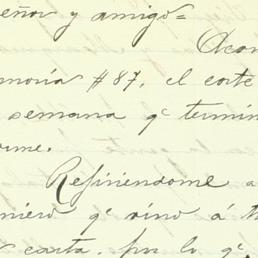 eñor y amigo =
Acom
moria #87, el corte
semana qe termin
orme.
Refiriéndome a
niero qe vino á t
carta, por lo qe